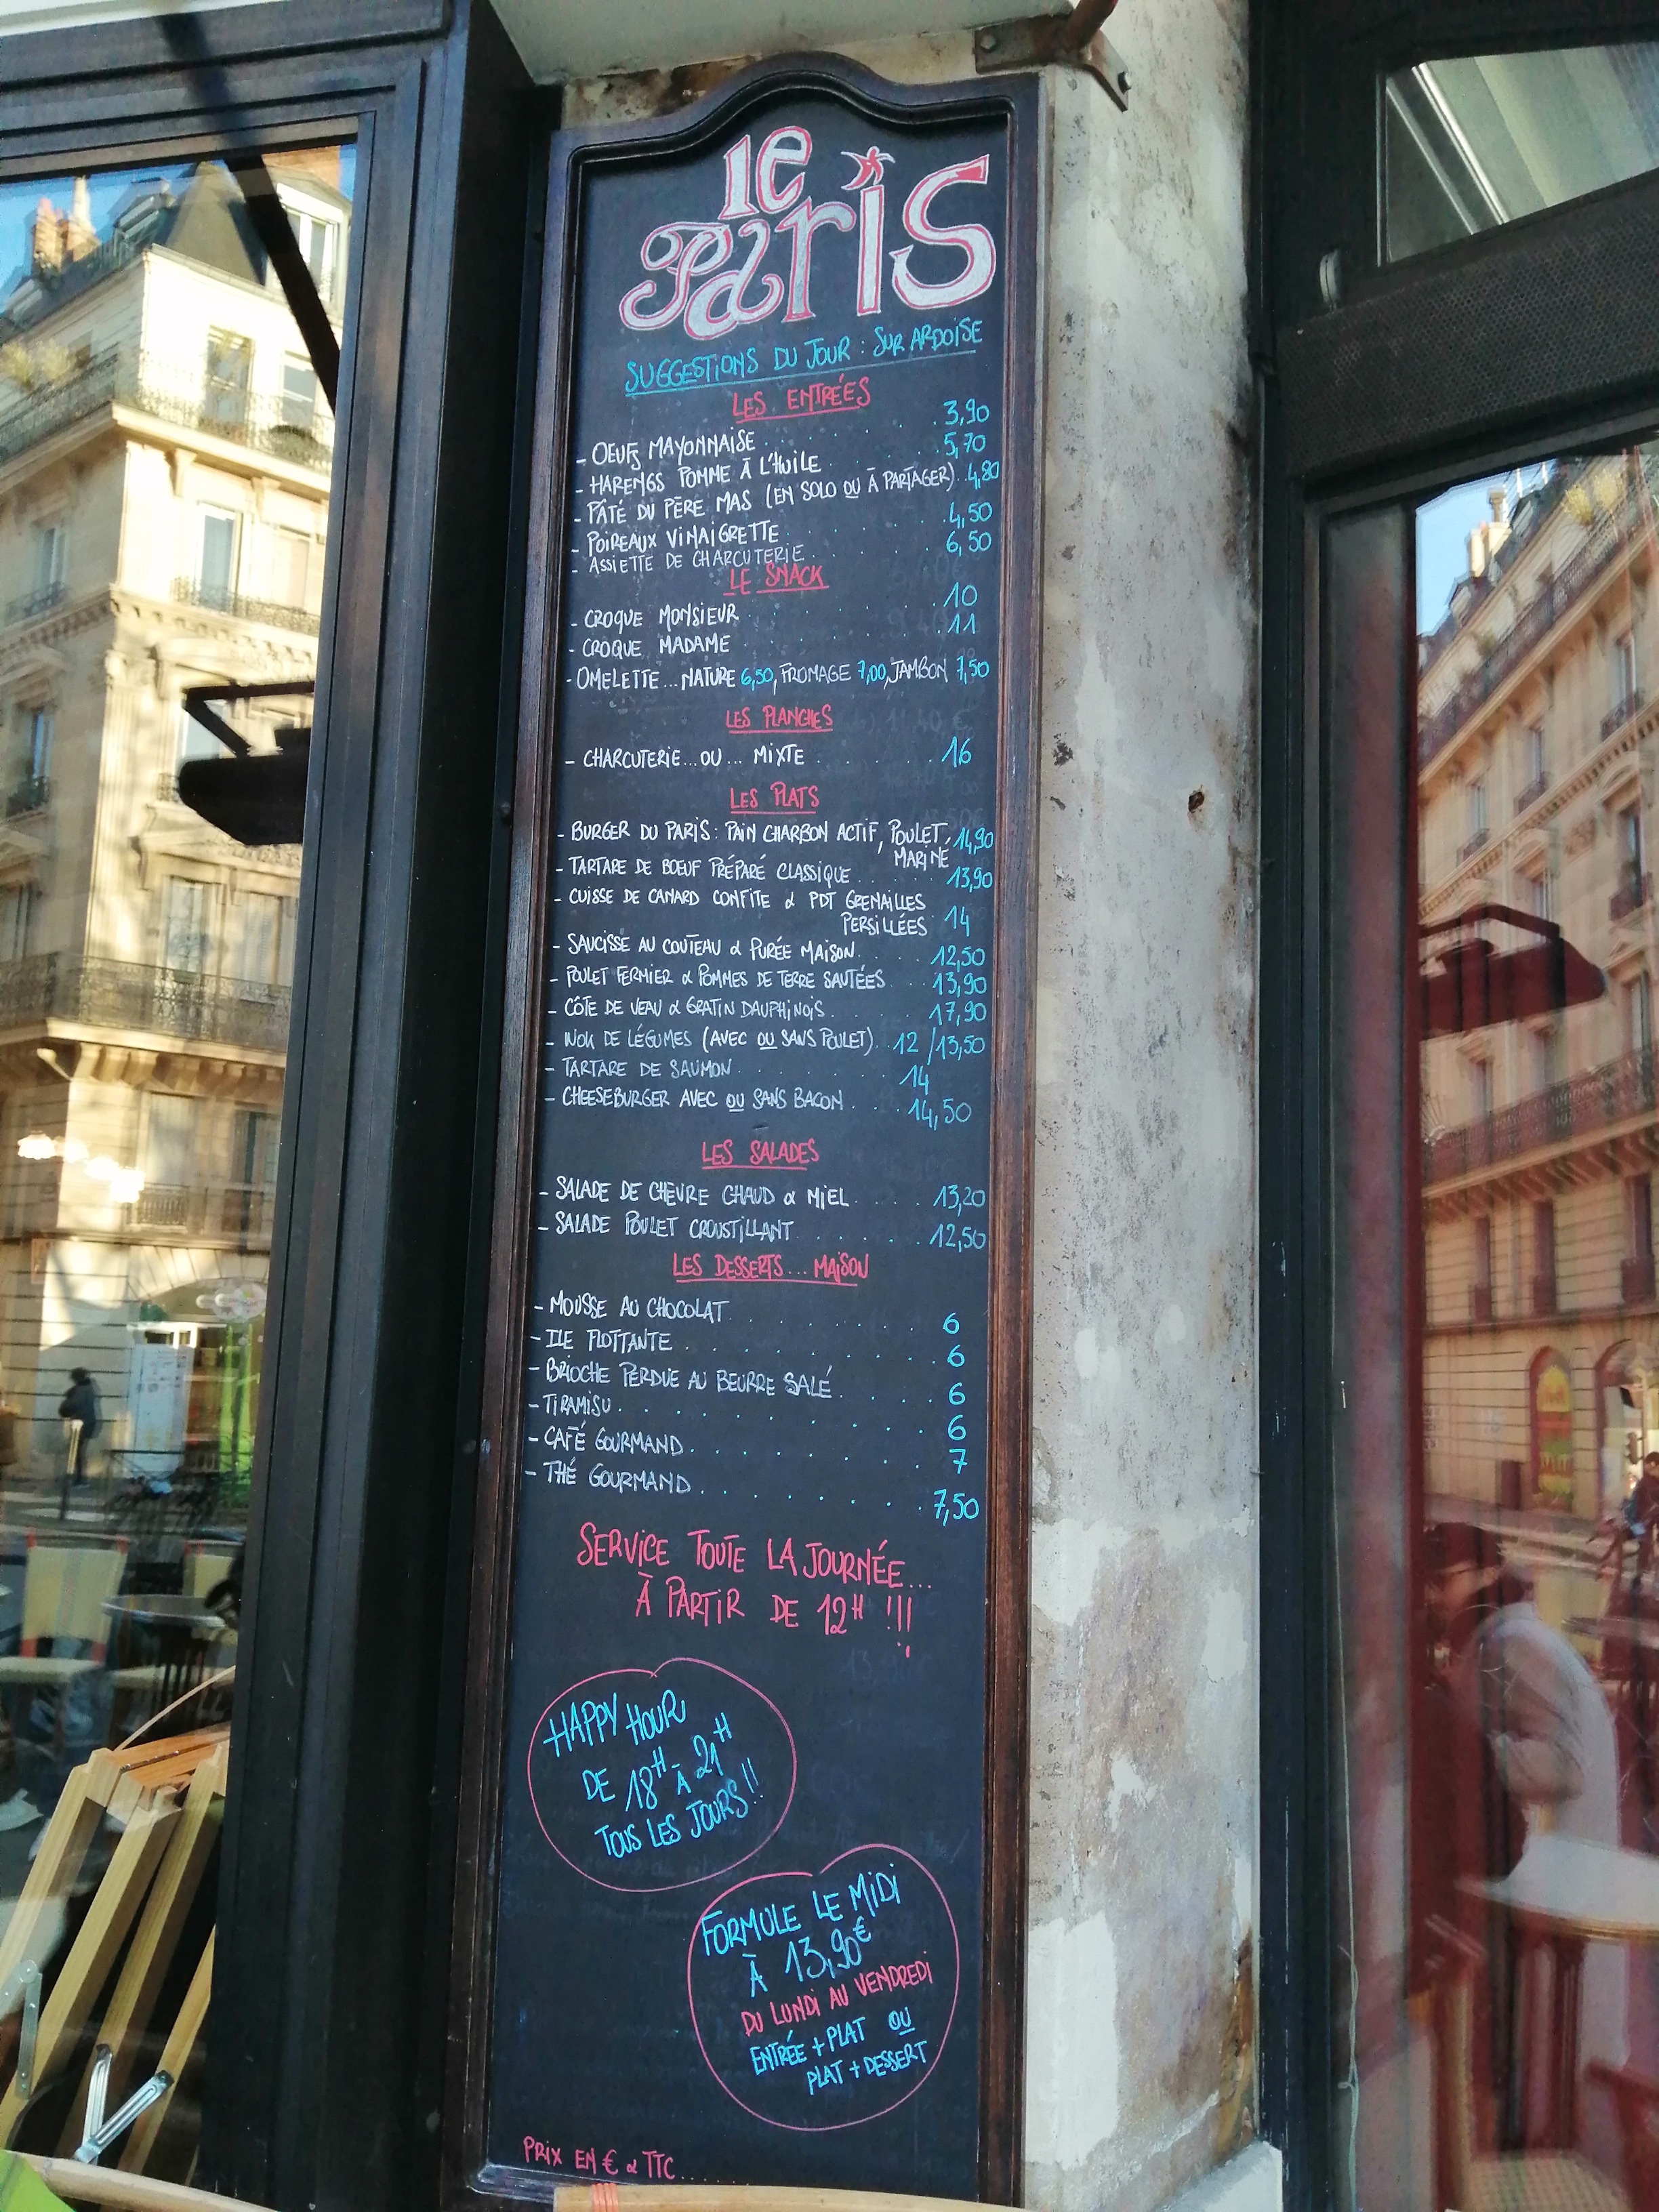 le
Paris
SUGGESTIONS DU JOUR : SUR ARDOISE
LES ENTRÉES
- OEUFS MAYONNAISE . . . . . . 3,90
- HARENGS POMME À L'HUILE . . . . 5,70
- PÂTÉ DU PÈRE MAS (EN SOLO OU À PARTAGER) .. 4,80
- POIREAUX VINAIGRETTE . . . . . 4,50
- ASSIETTE DE CHARCUTERIE . . . . . 6,50
LE SNACK
- CROQUE MONSIEUR . . . . . . 10
- CROQUE MADAME . . . . . . 11
- OMELETTE ... NATURE 6,50, FROMAGE 7,00, JAMBON 7,50
LES PLANCHES
- CHARCUTERIE ... OU ... MIXTE . . . . . 16
LES PLATS
- BURGER DU PARIS : PAIN CHARBON ACTIF, POULET 14,90
MARINÉ
- TARTARE DE BOEUF PRÉPARÉ CLASSIQUE . . . . . 13,90
- CUISSE DE CANARD CONFITE & PDT GRENAILLES
PERSILLÉES 14
- SAUCISSE AU COUTEAU & PURÉE MAISON . . . . 12,50
- POULET FERMIER & POMMES DE TERRE SAUTÉES . . . 13,90
- CÔTE DE VEAU & GRATIN DAUPHINOIS . . . . . 17,90
- WOK DE LÉGUMES (AVEC OU SANS POULET) . . 12 / 13,50
- TARTARE DE SAUMON . . . . . . 14
- CHEESEBURGER AVEC OU SANS BACON . . . 14,50
LES SALADES
- SALADE DE CHEVRE CHAUD & MIEL . . . . 13,20
- SALADE POULET CROUSTILLANT . . . . . . 12,50
LES DESSERTS ... MAISON
- MOUSSE AU CHOCOLAT . . . . . . . 6
- ILE FLOTTANTE . . . . . . . . 6
- BRIOCHE PERDUE AU BEURRE SALÉ . . . . 6
- TIRAMISU . . . . . . . . . 6
- CAFÉ GOURMAND . . . . . . . . 7
- THÉ GOURMAND . . . . . . . . 7,50
SERVICE TOUTE LA JOURNÉE...
À PARTIR DE 12H !!!
HAPPY HOUR
DE 18H À 21H
TOUS LES JOURS !!
FORMULE LE MIDI
À 13,90€
DU LUNDI AU VENDREDI
ENTRÉE + PLAT OU
PLAT + DESSERT
PRIX EN € & TTC......